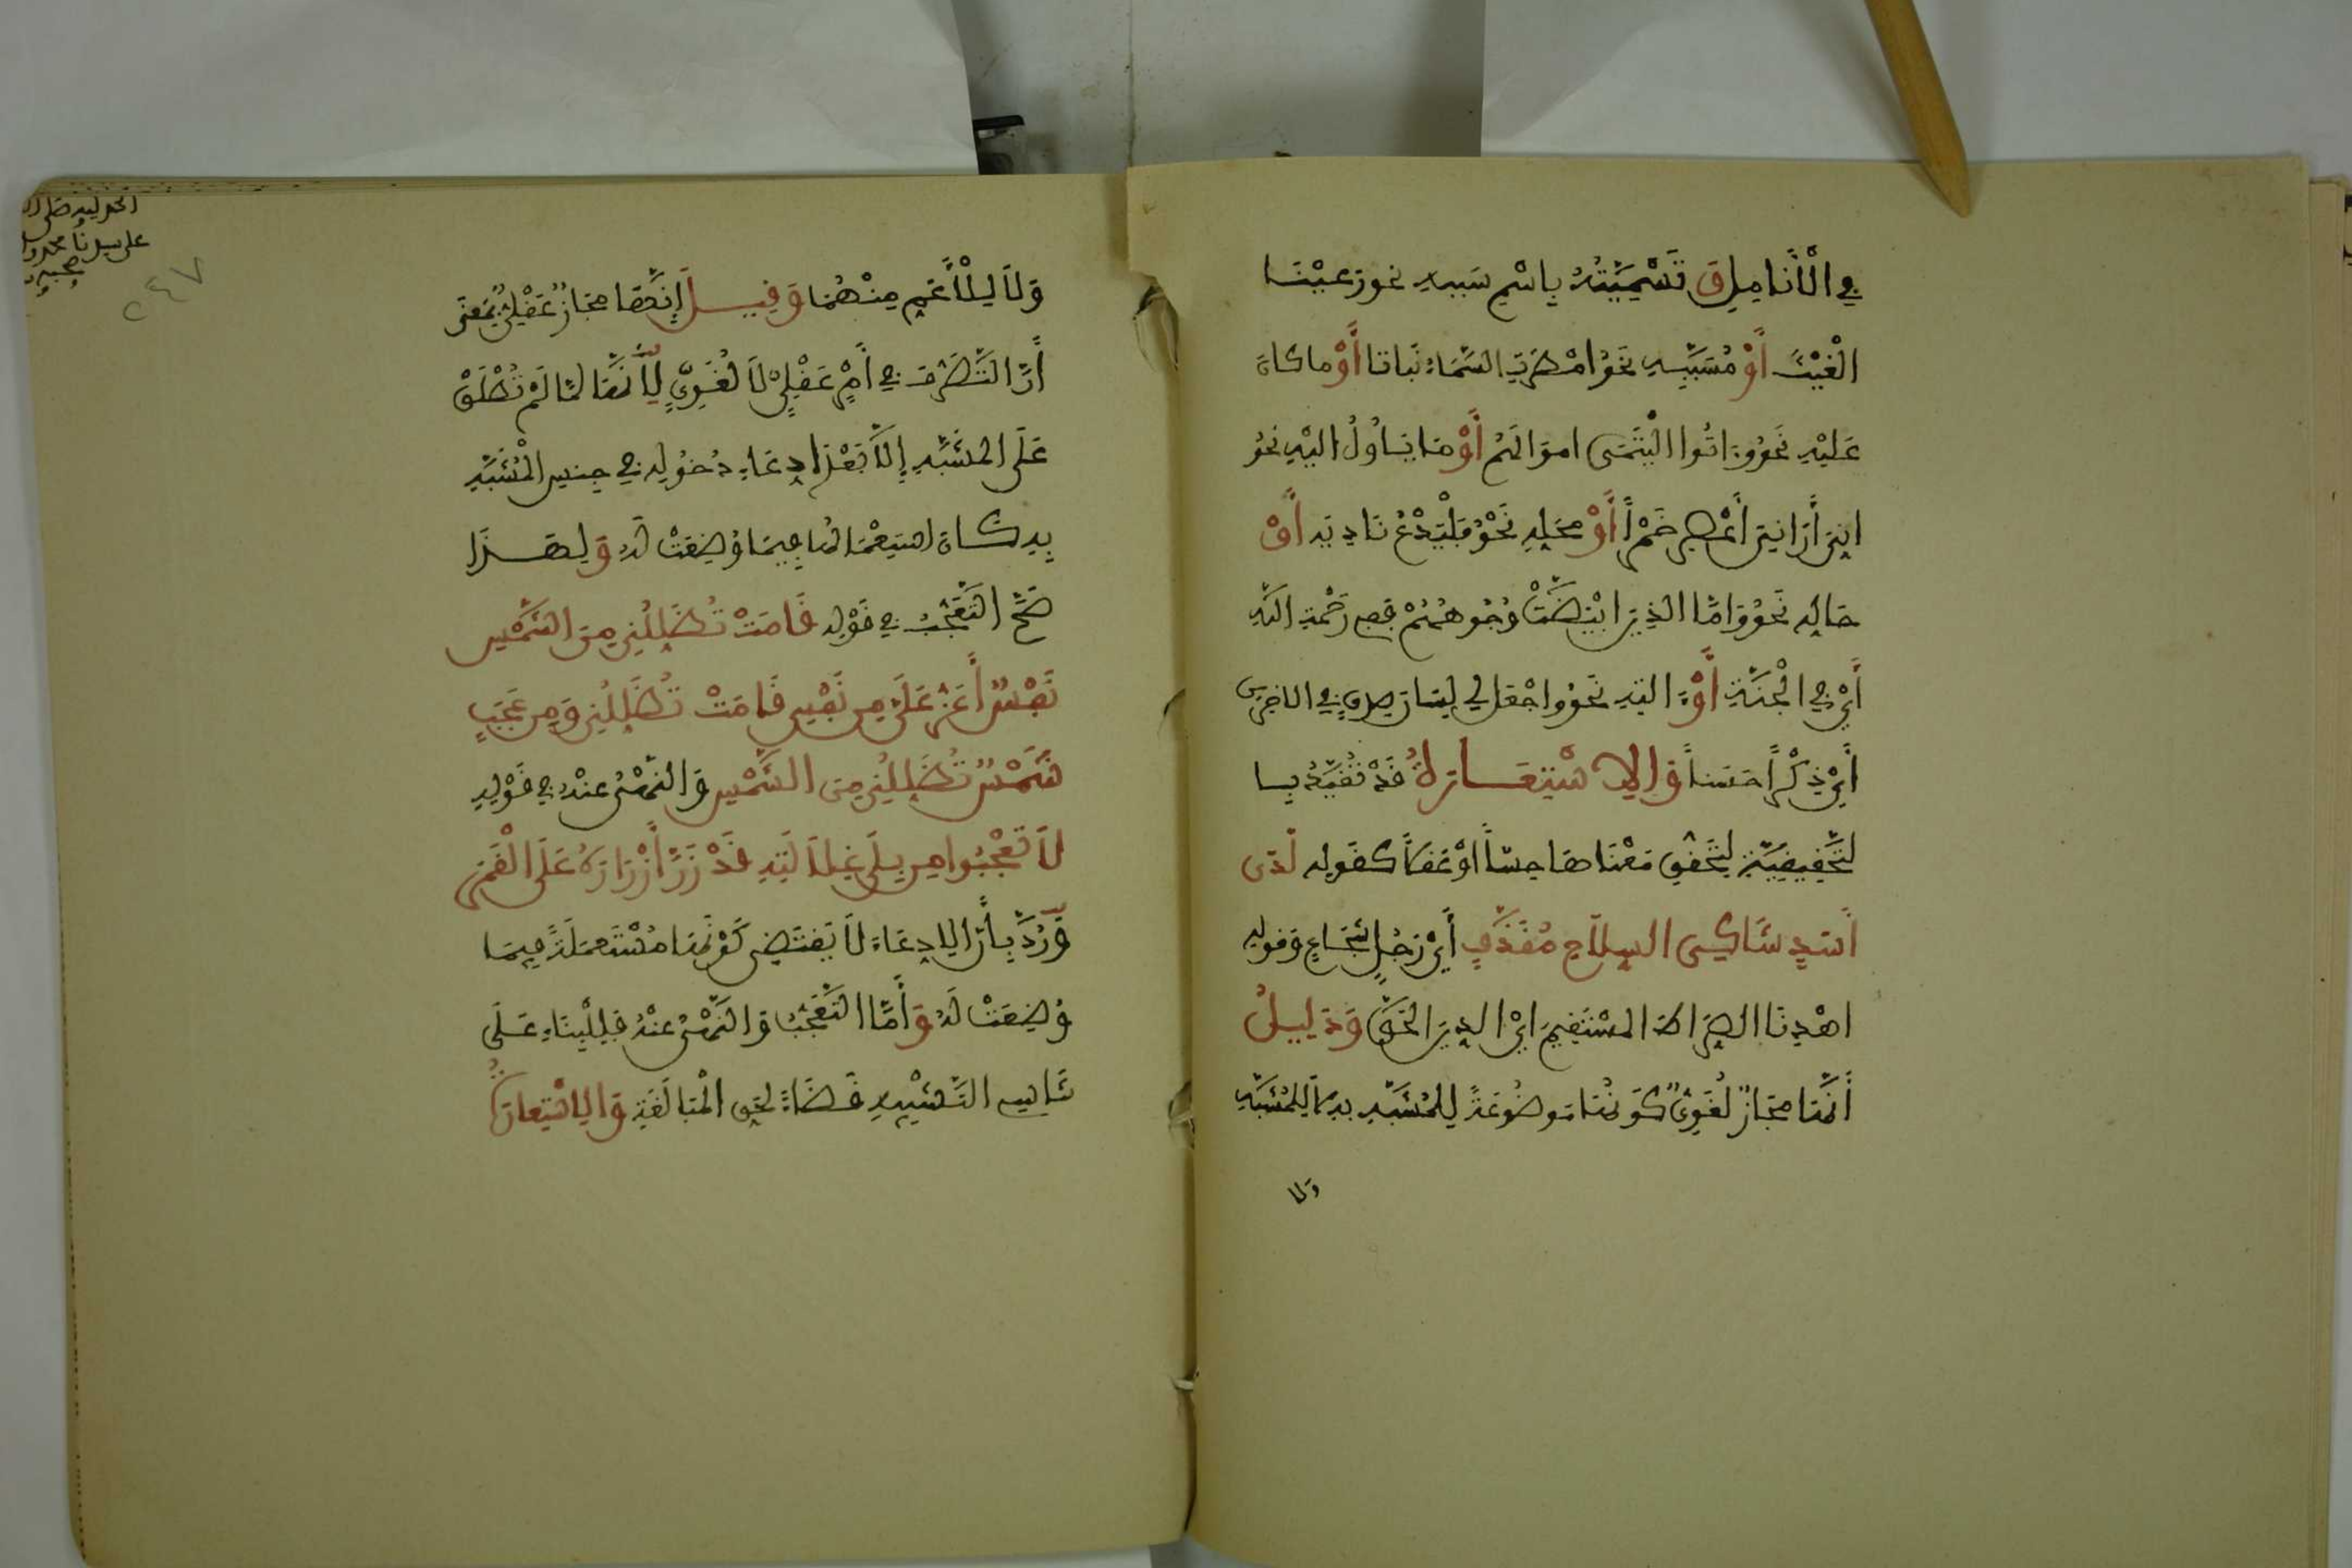 في الْأَنَامِلِ وَ تَسْمِيَتُهُ بِاسْمِ سَبَبِهِ نحو رَعَيْنَا
الْغَيْثَ أَوْ مُسَبَّبِهِ نَحْوُ امْطَرَتِ السَّمَاءُ نَبَاتا أَوْ ما كانَ
عَلَيْهِ نَحْوُ وَءَاتُوا الْيَتَمَى اموَالَهُمْ أَوْ مَا يَـُٔولُ الَيْهِ نَحْوُ
انِّيَ أَرَانِيَ أَعْصِرُ خَمْراً أَوْ مَحَلِّهِ نَحْوُ فَلْيَدْعُ نَادِيَه أَوْ
حَالِهِ نَحْوُ وَامَّا الذِينَ ابْيَضَّتْ وُجُوهُهُمْ فَفِي رَحْمَةِ اللَّهِ
أَيْ فِي الْجَنَّةِ أَوْ ءَالَتِهِ نَحْوُ وَاجْعَل لي لِسَانَ صِدْقٍ فِي الاخِرِينَ
أَيْ ذِكْراً حَسَناً وَالِاسْتِعَارَةُ قَدْ تُقَيَّدُ بِا
لتَّحْقِيقِيَّةِ لِتَحَقُّقِ مَعْنَاهَا حِسّاً أَوْ عَقْلاً كقوله لَدَى
أَسَدٍ شَاكِي السِلَاحِ مُقَذَّفٍ أَيْ رَجُلٍ شُجَاعٍ وَقوله
اهْدِنَا الصِّرَاطَ الْمُسْتَقِيمَ ايْ الدِينَ الحَقَّ وَدَلِيلُ
أَنَّهَا مَجَازٌ لُغَوِيٌّ كَوْنُهَا مَوضُوعَةً لِلْمُشَبَّهِ بِهِ لاَ لِلْمُشَبَّهِ
وَلا
الحمد لله صلى الله
على سيدنا محمد و
صحبه
٢٤٧
وَلاَ لِلْأَعَمِّ مِنْهُمَا وَقِيلَ إِنَّهَا مَجَازٌ عَقْلِيٌّ بِمَعْنَى
أَنَّ التَّصَرُّفَ فِي أَمْرٍ عَقْلِيٍّ لاَ لُغَوِيٍّ لِأَنَّهَا لَمَّا لَمْ تُطْلَقْ
عَلَى المُشَبَّهِ إِلاَّ بَعْدَ ادِعَاءِ دُخُولِهِ فِي جِنسِ الْمُشَبَّهِ
بِهِ كَانَ اسْتِعْمَالُهَا فِيمَا وُضِعَتْ لَهُ وَلِهَذَا
صَحَّ التَّعَجُّبُ فِي قَوْلِهِ قَامَتْ تُظَلِّلُنِي مِنَ الشَّمْسِ
نَفْسٌ أَعَزُّ عَلَيَّ مِن نَفْسِي قَامَتْ تُظَلِّلُنِي وَمِن عَجَبٍ
شَمْسٌ تُظَلِّلُنِي مِنَ الشَّمْسِ وَالنَّهْيُ عَنْهُ فِي قَوْلِهِ
لاَ تَعْجَبُوا مِن بِلَى غِلَالَتِهِ قَدْ زَرَّ أَزْرَارَهُ عَلَى الْقَمَرِ
وَرُدَّ بِأَنَّ الادِعَاءَ لاَ يَقتَضِي كَوْنَهَا مُسْتَعمَلَةً فِيمَا
وُضِعَتْ لَهُ وَأَمَّا التَّعَجُّبُ وَالنَّهْيُ عَنْهُ فَلِلْبِنَاءِ عَلَى
تَنَاسِي التَّشْبِيهِ قَضَاءً لِحَقِّ الْمُبَالَغَةِ وَالِاسْتِعَارَةُ